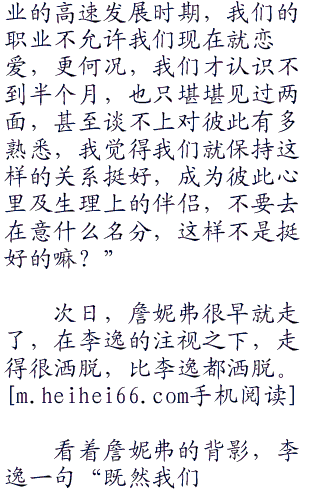 业的高速发展时期，我们的
职业不允许我们现在就恋
爱，更何况，我们才认识不
到半个月，也只堪堪见过两
面，甚至谈不上对彼此有多
熟悉，我觉得我们就保持这
样的关系挺好，成为彼此心
里及生理上的伴侣，不要去
在意什么名分，这样不是挺
好的嘛？”
次日，詹妮弗很早就走
了，在李逸的注视之下，走
得很洒脱，比李逸都洒脱。
[m.heihei66.com手机阅读]
看着詹妮弗的背影，李
逸一句“既然我们